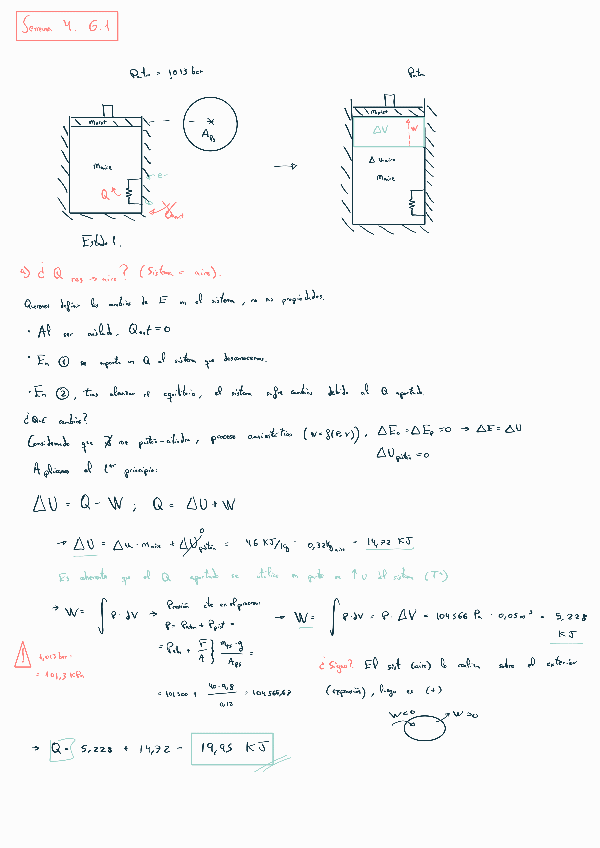 Semana 4. G.1
Patm = 1,013 bar
Patm
mpist
mpist
A ps
ΔV
W
maire
Δ u aire
maire
Q
e-
Qext
Estado 1.
a) ¿ Q res → aire? (Sistema = aire).
Queremos definir los cambios de E en el sistema, no sus propiedades.
· Al ser aislado, Qext = 0
· En ① se aporta un Q al sistema que desconocemos.
· En ②, tras alcanzar el equilibrio, el sistema sufre cambios debido al Q aportado.
¿Qué cambios?
Considerando que no pistón-cilindro, proceso cuasiestático (W = f(P,V)), ΔEc = ΔEp = 0 → ΔE = ΔU
ΔU pistón = 0
Aplicamos el 1er principio:
ΔU = Q - W ; Q = ΔU + W
→ ΔU = Δu · maire + ΔU pistón 0 = 46 KJ/kg · 0,32 kg aire = 14,72 KJ
Es coherente que el Q aportado se utilice en parte en ↑ U del sistema (Tª)
→ W = ∫ P · dV → Presión cte en el proceso
P = Patm + Ppist =
= Patm + F/A } mps · g / Aps =
= 101300 + 40 · 9,8 / 0,12 = 104565,67
→ W = ∫ P · dV = P ΔV = 104566 Pa · 0,05 m³ = 5,228 KJ
1,013 bar =
= 101,3 KPa
¿Signo? El sist (aire) lo realiza sobre el exterior
(expansión), luego es (+)
W<0
W>0
→ Q = 5,228 + 14,72 = 19,95 KJ